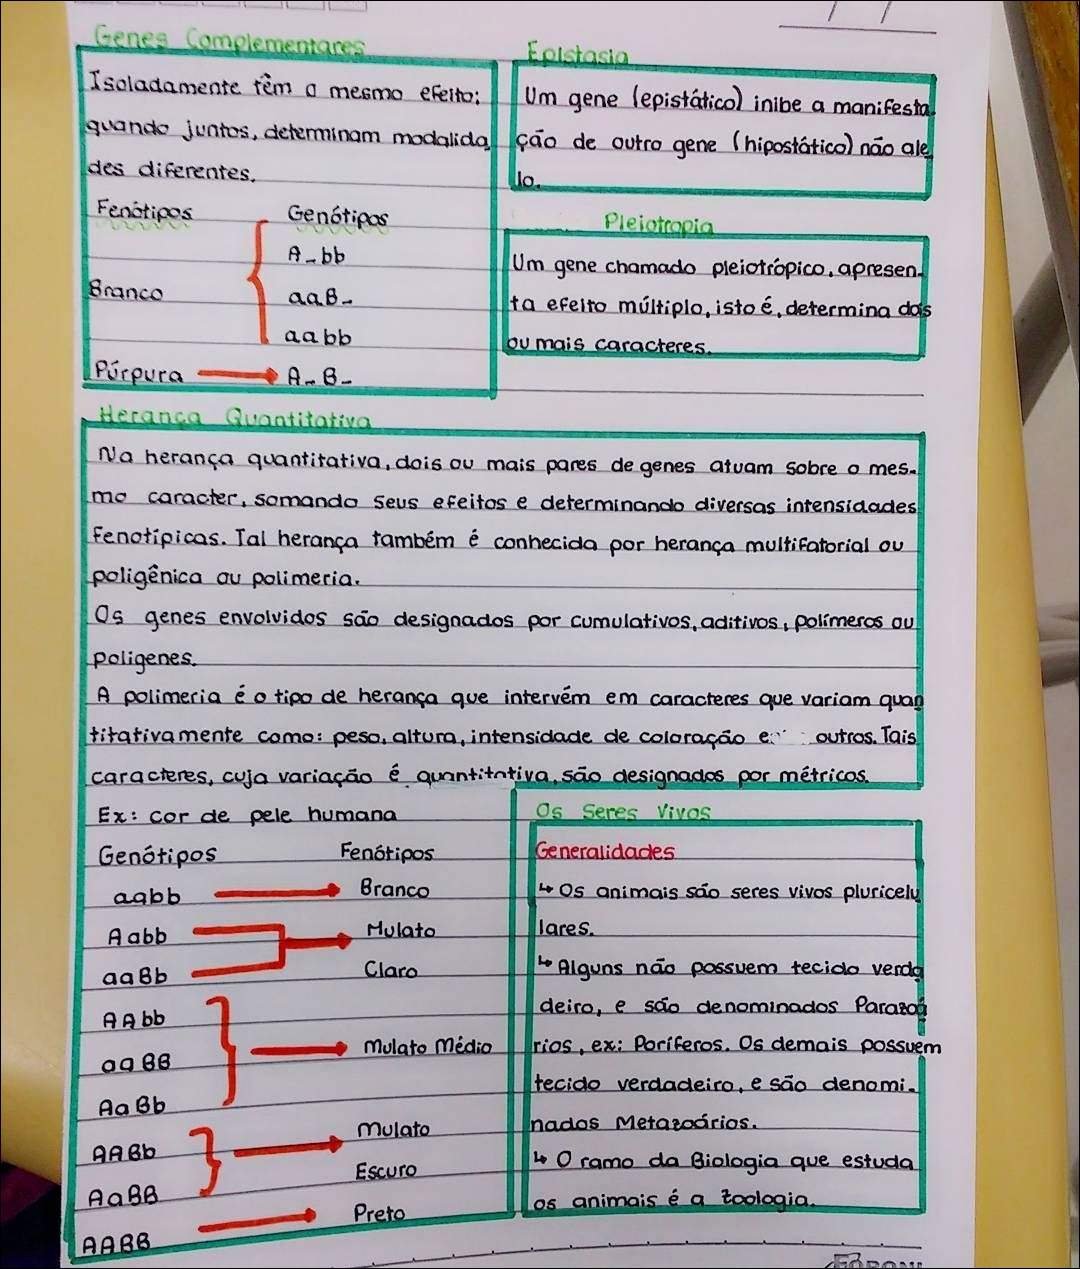 Genes Complementares
Isoladamente têm o mesmo efeito;
quando juntos, determinam modalida
des diferentes.
Fenótipos Genótipos
A-bb
Branco aaB-
aabb
Púrpura A-B-
Epistasia
Um gene (epistático) inibe a manifesta-
ção de outro gene (hipostático) não ale
lo.
Pleiotropia
Um gene chamado pleiotrópico, apresen-
ta efeito múltiplo, isto é, determina dois
ou mais caracteres.
Herança Quantitativa
Na herança quantitativa, dois ou mais pares de genes atuam sobre o mes-
mo caracter, somando seus efeitos e determinando diversas intensidades
fenotípicas. Tal herança também é conhecida por herança multifatorial ou
poligênica ou polimeria.
Os genes envolvidos são designados por cumulativos, aditivos, polímeros ou
poligenes.
A polimeria é o tipo de herança que intervém em caracteres que variam quan
titativamente como: peso, altura, intensidade de coloração e outros. Tais
caracteres, cuja variação é quantitativa, são designados por métricos.
Ex: cor de pele humana
Genótipos Fenótipos
aabb Branco
Aabb Mulato
aaBb Claro
AAbb
aaBB Mulato Médio
AaBb
AABb Mulato
AaBB Escuro
AABB Preto
Os Seres Vivos
Generalidades
↳ Os animais são seres vivos pluricelu
lares.
↳ Alguns não possuem tecido verda
deiro, e são denominados Parazoá
rios, ex: Poríferos. Os demais possuem
tecido verdadeiro, e são denomi-
nados Metazoários.
↳ O ramo da Biologia que estuda
os animais é a zoologia.
FORONI